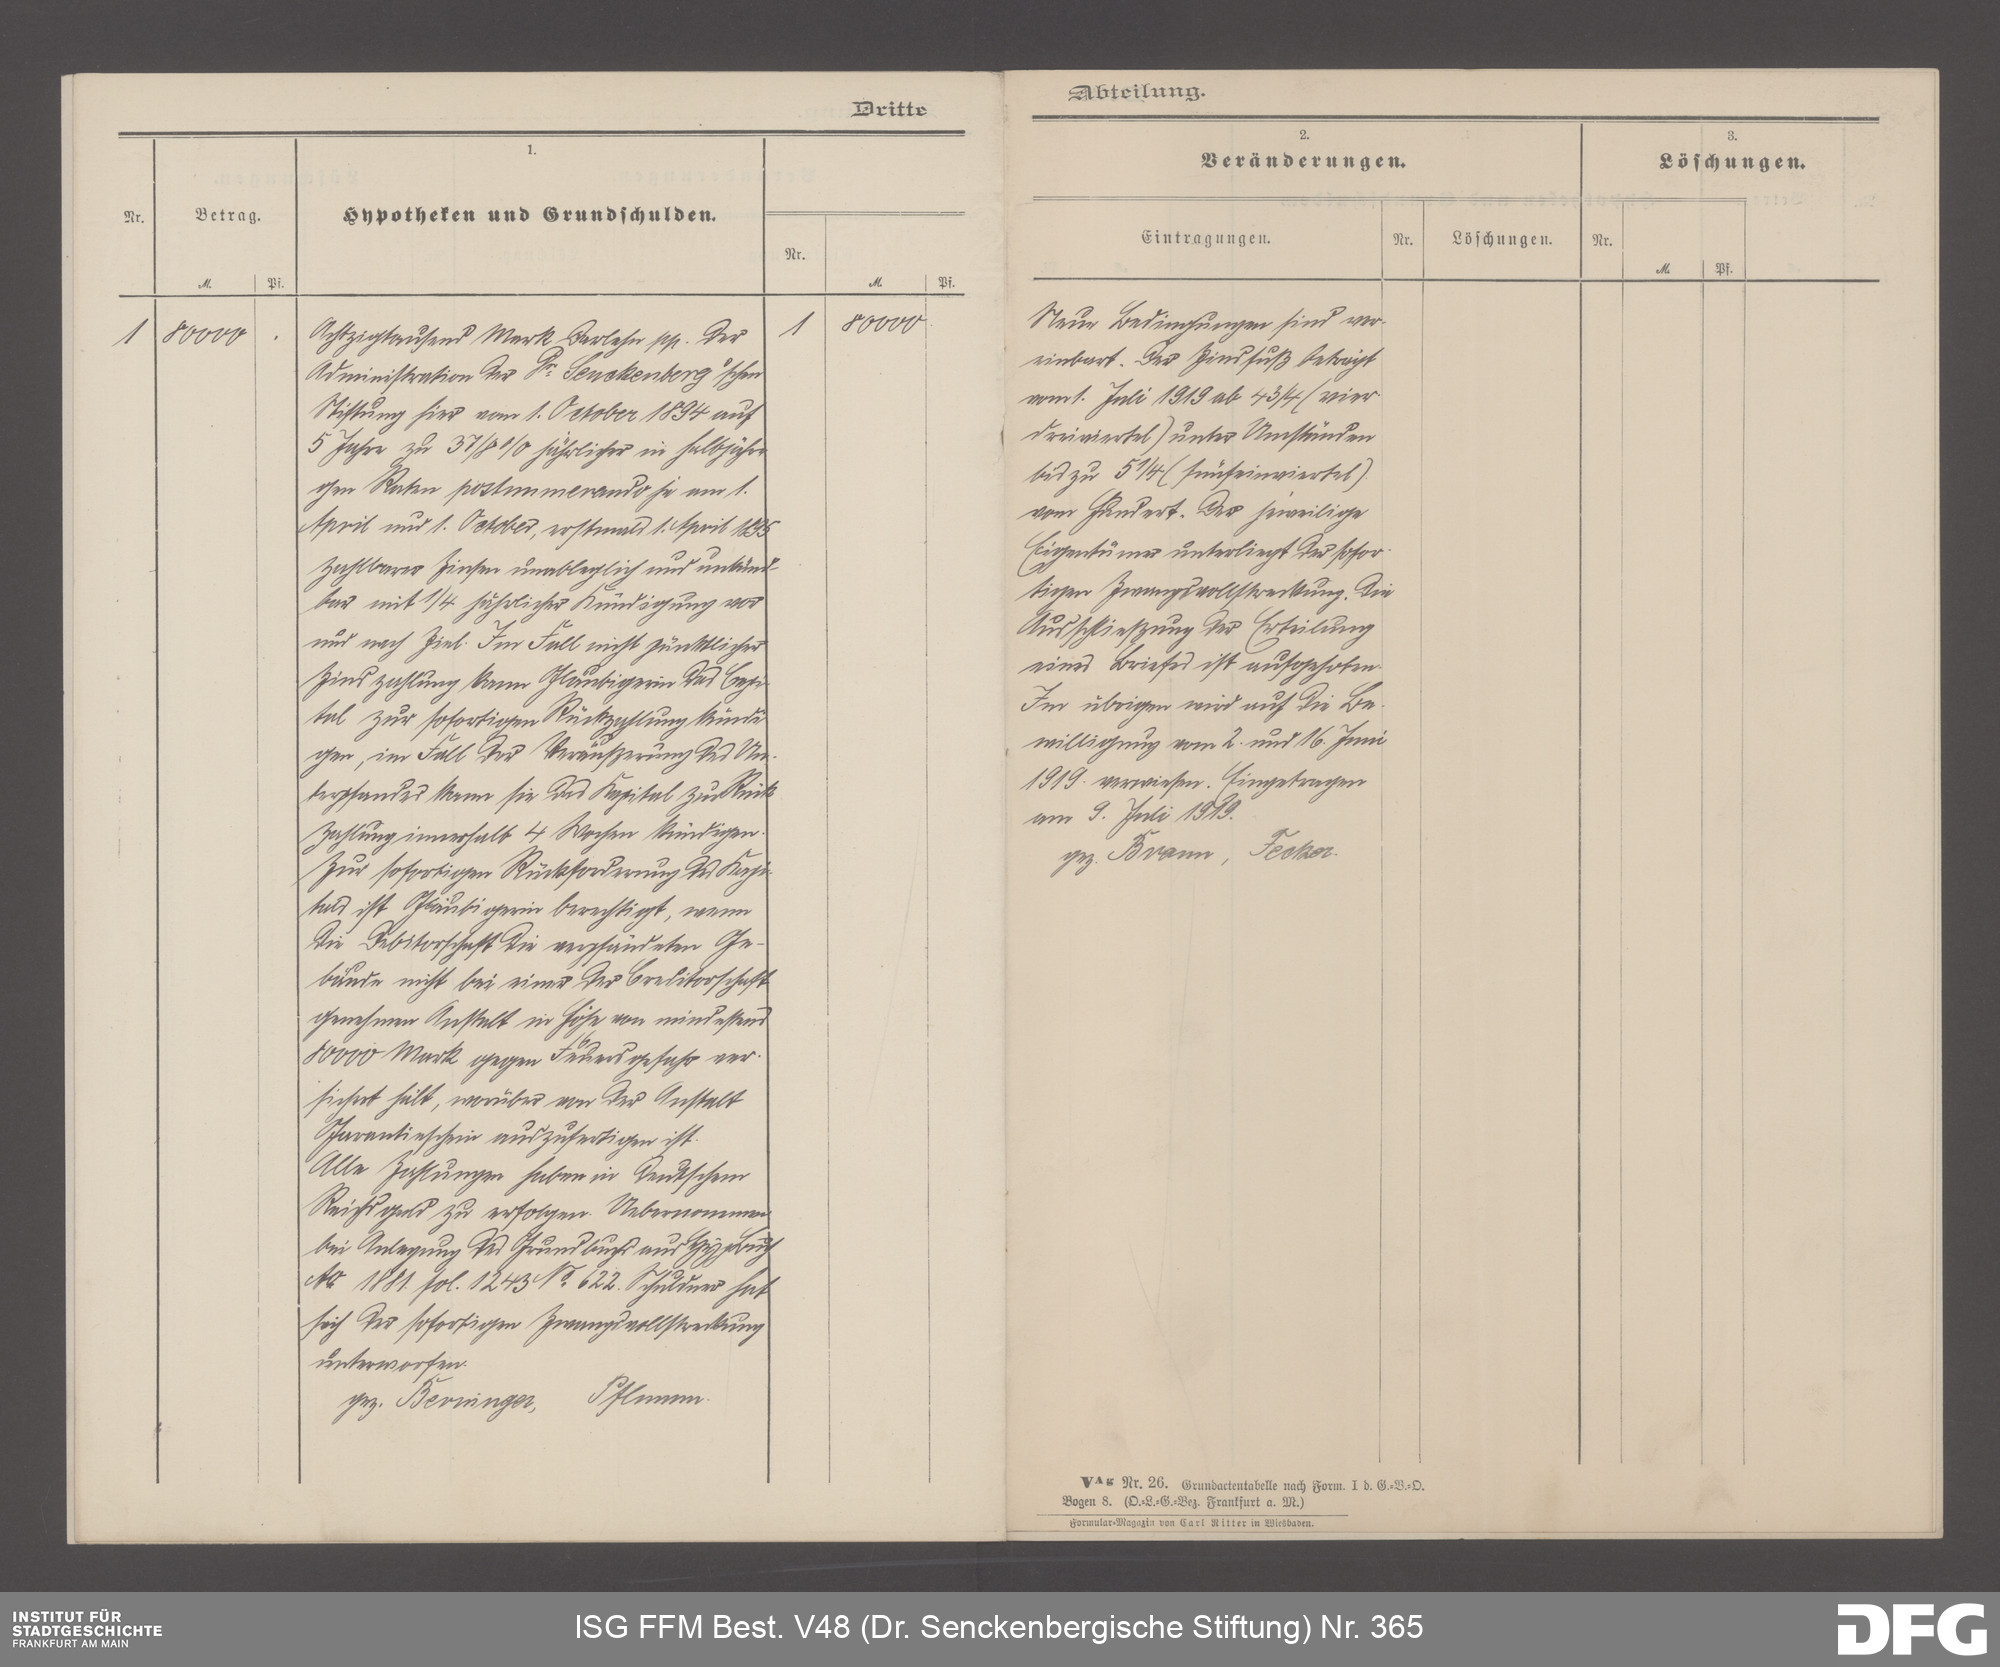 Dritte
1.
Nr.
Betrag.
Hypotheken und Grundschulden.
Nr.
M.
Pf.
M.
Pf.
1
80000
.
Achtzigtausend Mark Darlehn pp. der
Administration der Dr. Senckenberg'schen
Stiftung hier vom 1. October 1894 auf
5 Jahre zu 3 7/8 % jährlicher in halbjähri
gen Raten postnumerando je am 1.
April und 1. October, erstmals 1. April 1895
zahlbarer Zinsen unableglich und unkünd-
bar mit 1/4 jährlicher Kündigung vor
und nach Ziel. Im Fall nicht pünktlicher
Zinszahlung kann Gläubigerin das Capi-
tal zur sofortigen Rückzahlung kündi
gen, im Fall der Veräußerung des Un-
terpfandes kann sie das Kapital zur Rück
zahlung innerhalb 4 Wochen kündigen.
Zur sofortigen Rückforderung des Kapi-
tals ist Gläubigerin berechtigt, wenn
die Debitorschaft die verpfändeten Ge-
bäude nicht bei einer der Creditorschaft
genehmen Anstalt in Höhe von mindestens
80000 Mark gegen Feuersgefahr ver-
sichert hält, worüber von der Anstalt
Garantieschein auszufertigen ist.
Alle Zahlungen haben in deutschem
Reichsgeld zu erfolgen. Uebernommen
bei Anlegung des Grundbuchs aus Hyp. Buch
1881. fol. 1243 No. 622. Schuldner hat
sich der sofortigen Zwangsvollstreckung
unterworfen.
gez. Berninger, Pflumm.
1
80000
Abteilung.
2.
Veränderungen.
3.
Löschungen.
Eintragungen.
Nr.
Löschungen.
Nr.
M.
Pf.
Neue Bedingungen sind ver-
einbart. Der Zinsfuß beträgt
vom 1. Juli 1919 ab 4 3/4 (vier
dreiviertel) unter Umständen
bis zu 5 1/4 (fünfeinviertel)
vom Hundert. Der jeweilige
Eigentümer unterliegt der sofor-
tigen Zwangsvollstreckung. Die
Ausschließung der Erteilung
eines Briefes ist aufgehoben.
Im übrigen wird auf die Be-
willigung vom 2. und 16. Juni
1919. verwiesen. Eingetragen
am 9. Juli 1919.
gez. Braun, Fecker.
VAg Nr. 26. Grundactentabelle nach Form. I d. G.=B.=O.
Bogen 8. (O.=L.=G.=Bez. Frankfurt a. M.)
Formular=Magazin von Carl Ritter in Wiesbaden.
INSTITUT FÜR
STADTGESCHICHTE
FRANKFURT AM MAIN
ISG FFM Best. V48 (Dr. Senckenbergische Stiftung) Nr. 365
DFG